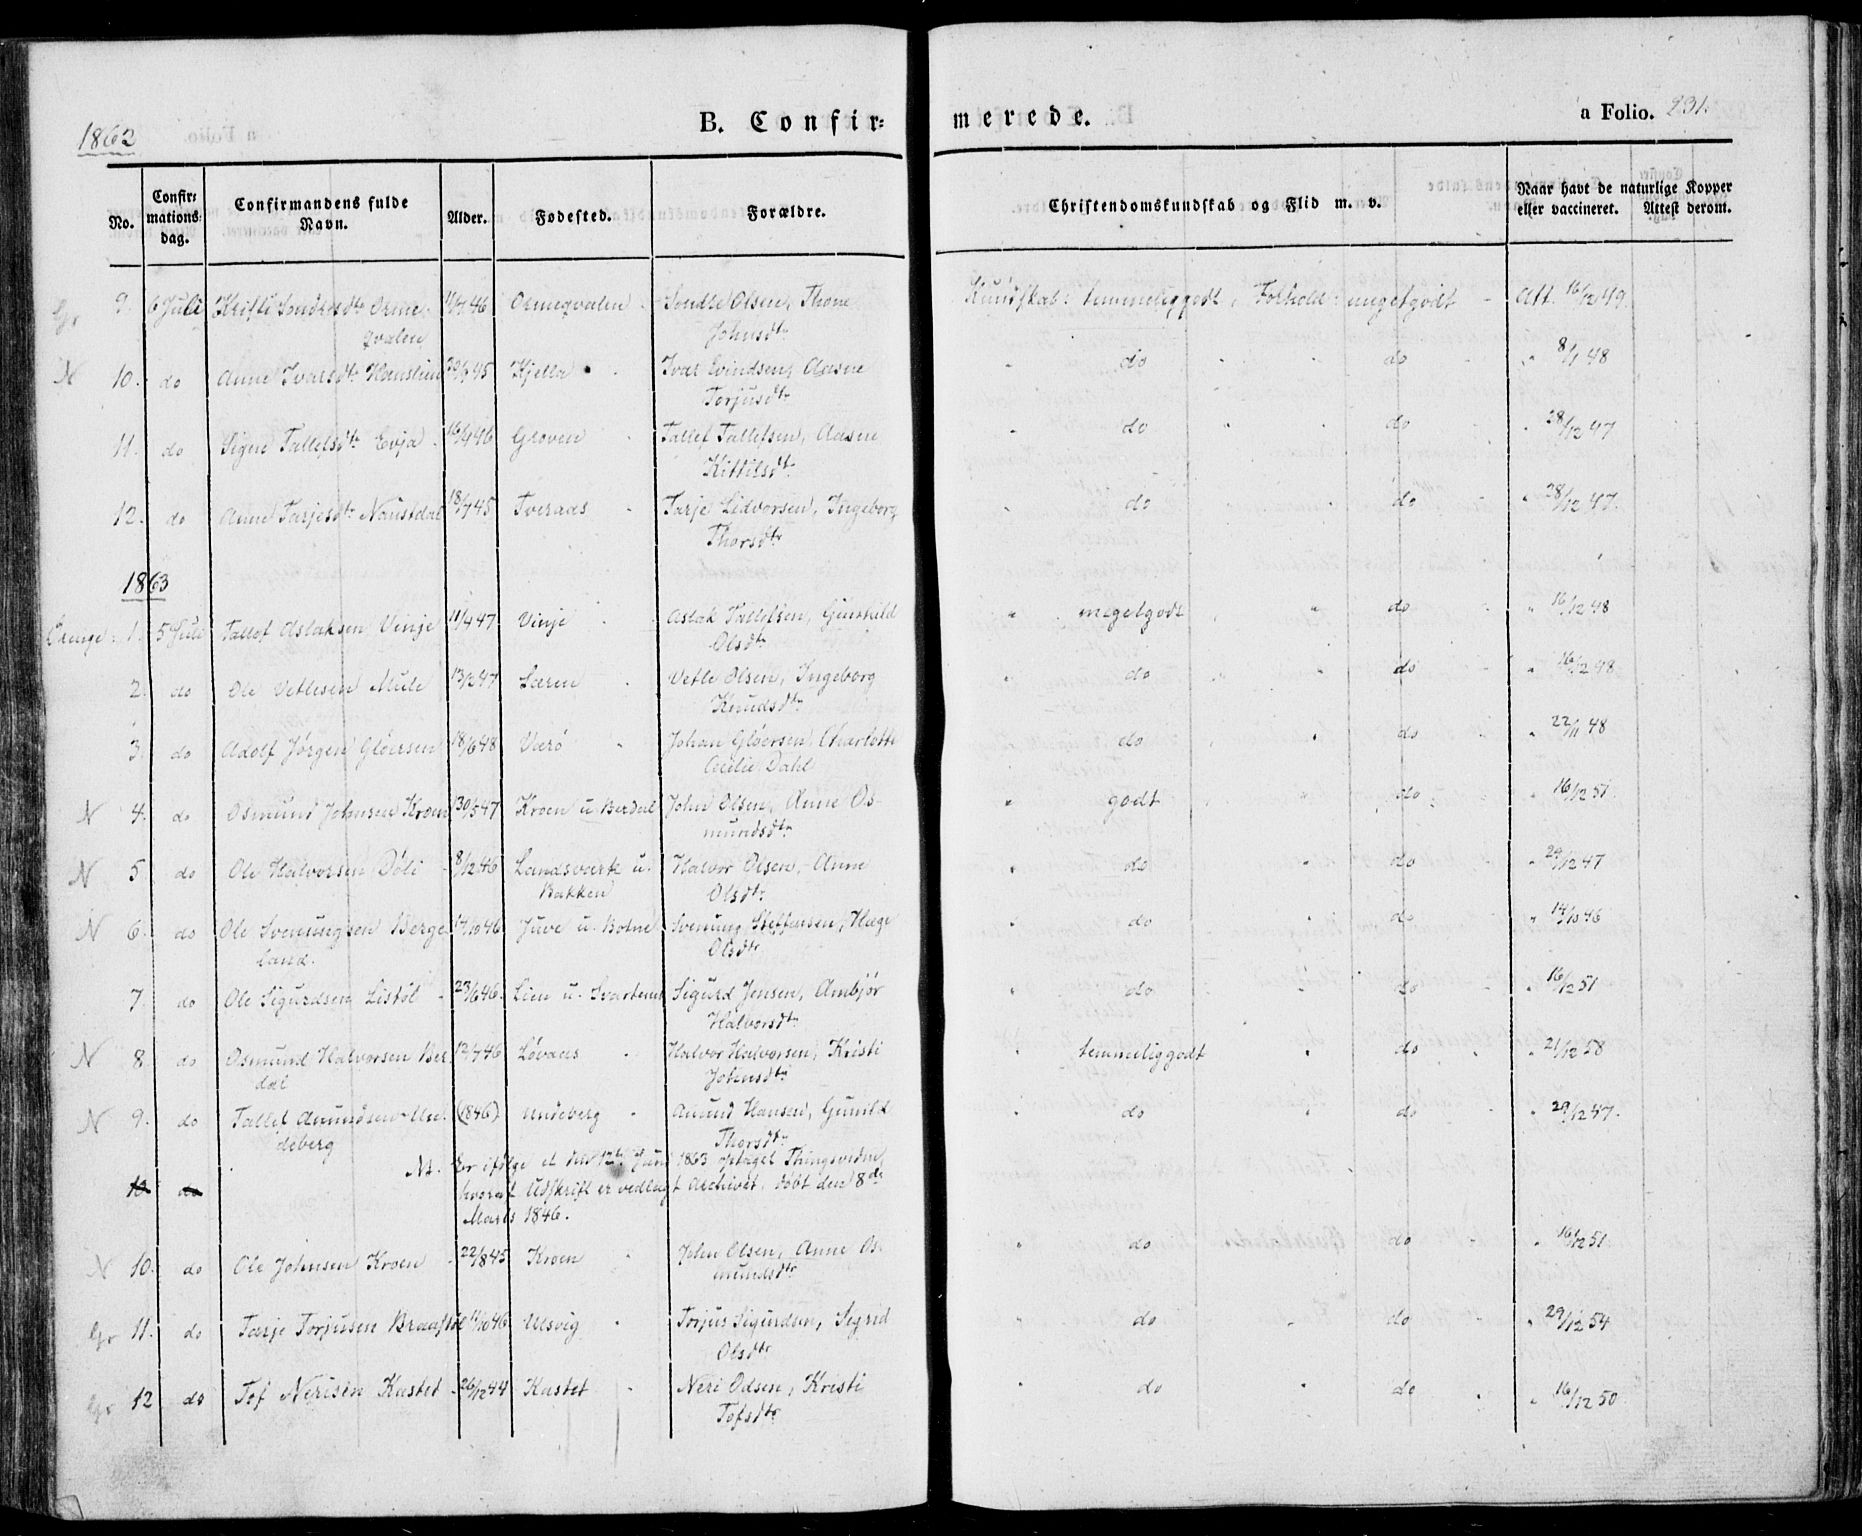 1862
B. Confir=
merede.
a Folio. 231.
No.
Confir=
mations=
dag.
Confirmandens fulde
Navn.
Alder.
Fødested.
Forældre.
Christendomskundskab og Flid m. v.
Naar havt de naturlige Kopper
eller vaccineret. Attest derom.
Gr 9. 6 Juli Kristi Sondresdtr Orme- 11/7 46 Ormeqvalen Sondre Olsen, Thone Kundskab: temmeliggodt, Forhold: megetgodt Att. 16/12 49.
qvalen Johnsdtr
N 10. do Anne Ivarsdtr Kjella Ivar Evindsen, Aasne do do " 8/1 48
Torjusdtr
11. do Signe Tallefsdtr Evja 16/4 46 Groven Tallef Tallefsen, Aasne do do " 28/12 47
Kittilsdtr
12. do Anne Tarjesdtr Naustdal 18/7 45 Tveraas Tarje Lidvorsen, Ingeborg do do " 28/12 47.
Thorsdtr
1863
Drenge: 1. 5 Juli Tallef Aslaksen Vinje 11/4 47 Vinje Aslak Tallefsen, Gunhild megetgodt do " 16/12 48
Olsdtr
2. do Ole Vetlesen Mule 13/2 47 Vetle Olsen, Ingeborg do do " 16/12 48
Knudsdtr
3. do Adolf Jørgen Gløersen 18/6 48 Værø Johan Gløersen, Charlotte do do " 22/11 48
Cecilie Dahl
N 4. do Osmund Johnsen Kroen 30/5 47 Kroen u. Berdal John Olsen, Anne Os- godt do " 16/12 51.
mundsdtr
N 5 do Ole Halvorsen Døli 8/12 46 Landsværk u. Halvor Olsen, Anne do do " 29/12 47
Bakken Olsdtr
N 6. do Ole Svenungsen Berge- 14/10 46 Juve u. Botne Svenung Steffensen, Hæge do do " 14/10 46
land. Olsdtr
7. do Ole Sigurdsen Listøl 23/6 46. Lien u. Sigurd Jensen, Ambjør do do " 16/12 51
Halvorsdtr
N 8. do Osmund Halvorsen Ber- 12/7 46 Løvaas Halvor Halvorsen, Kristi temmeliggodt do " 21/12 58
dal Johnsdtr
N 9. do Tallef Amundsen Un- (1846) Undeberg Amund Hansen, Gunild do do " 29/12 47.
deberg Thorsdtr
Er ifølge et den 12te Juni 1863 optaget Thingsvidne,
10 do hvoraf Udskrift er vedlagt Archivet, døbt den 8de
Marts 1846.
N 10. do Ole Johnsen Kroen 22/8 45 Kroen John Olsen, Anne Os- do do " 16/12 51
mundsdtr
Gr 11. do Tarje Torjusen 11/10 46 Ulsvig Torjus Sigurdsen, Sigrid do do " 29/12 54
Olsdtr
Gr 12 do Tof Nerisen Kastet 26/12 44 Kastet Neri Odsen, Kristi do do " 16/12 50
Tofsdtr